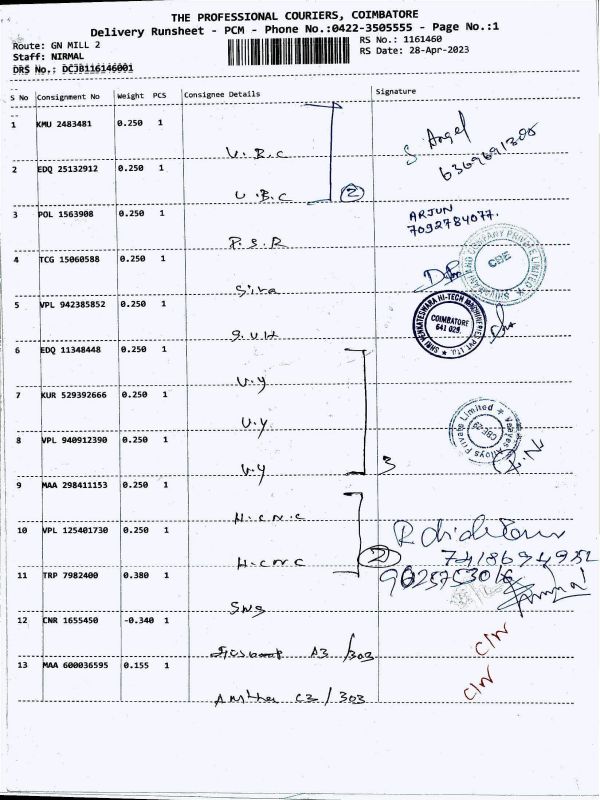 THE PROFESSIONAL COURIERS, COIMBATORE
Delivery Runsheet - PCM - Phone No.:0422-3505555 - Page No.:1
Route: GN MILL 2
RS No.: 1161460
Staff: NIRMAL
RS Date: 28-Apr-2023
DRS No.: DCJB116146001
S No Consignment No Weight PCS Consignee Details Signature
1 KMU 2483481 0.250 1
U.B.C
S Angel
2 EDQ 25132912 0.250 1
U.B.C
2
3 POL 1563908 0.250 1
P.S.R
ARJUN
7092784077.
4 TCG 15060588 0.250 1
Siva
CBE
5 VPL 942385852 0.250 1
S.V.H
SHRI VENKATESWARA HI-TECH MACHINERIES PVT LTD.
COIMBATORE
641 029.
6 EDQ 11348448 0.250 1
V.y
7 KUR 529392666 0.250 1
V.y
8 VPL 940912390 0.250 1
V.y
3
Alloys Private Limited
9 MAA 298411153 0.250 1
H.C.N.C
10 VPL 125401730 0.250 1
H.C.N.C
2
11 TRP 7982400 0.380 1
SNS
12 CNR 1655450 -0.340 1
A3 /303
C/N
13 MAA 600036595 0.155 1
C2 / 303
C/N